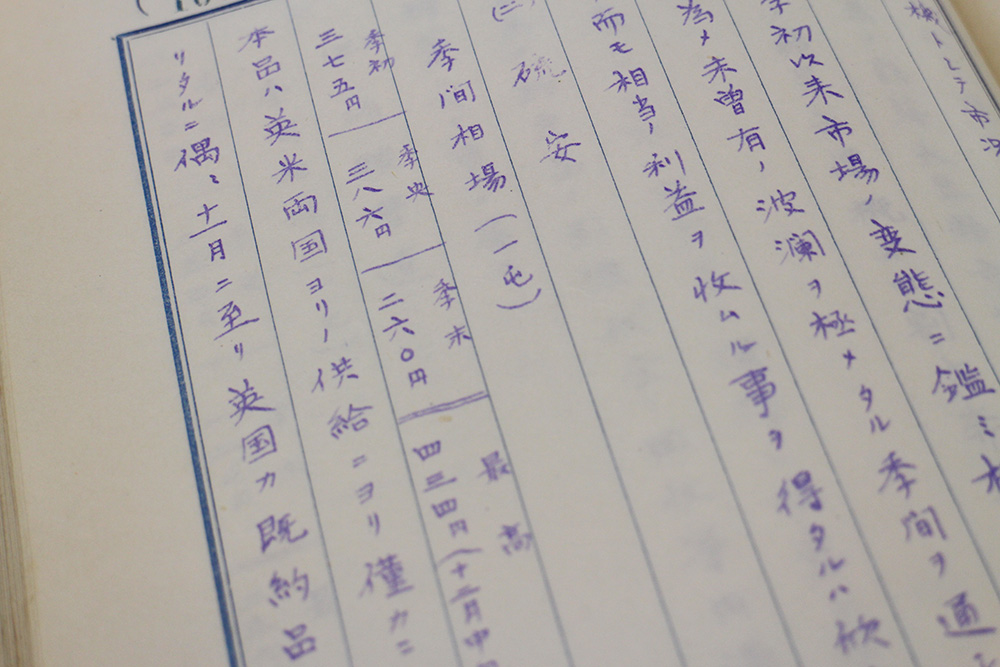 機トシテ市況
季初以来市場ノ変態ニ鑑ミ
為メ未曽有ノ波瀾ヲ極メタル季間ヲ通
而モ相当ノ利益ヲ收ムル事ヲ得タルハ欣
(二) 硫安
季間相場(一屯)
季初 季央 季末 最高
三七五円 三八六円 二六〇円 四三四円(十二月中
本品ハ英米両国ヨリノ供給ニヨリ僅カニ
リタルニ偶〻十一月ニ至リ英国カ既約品